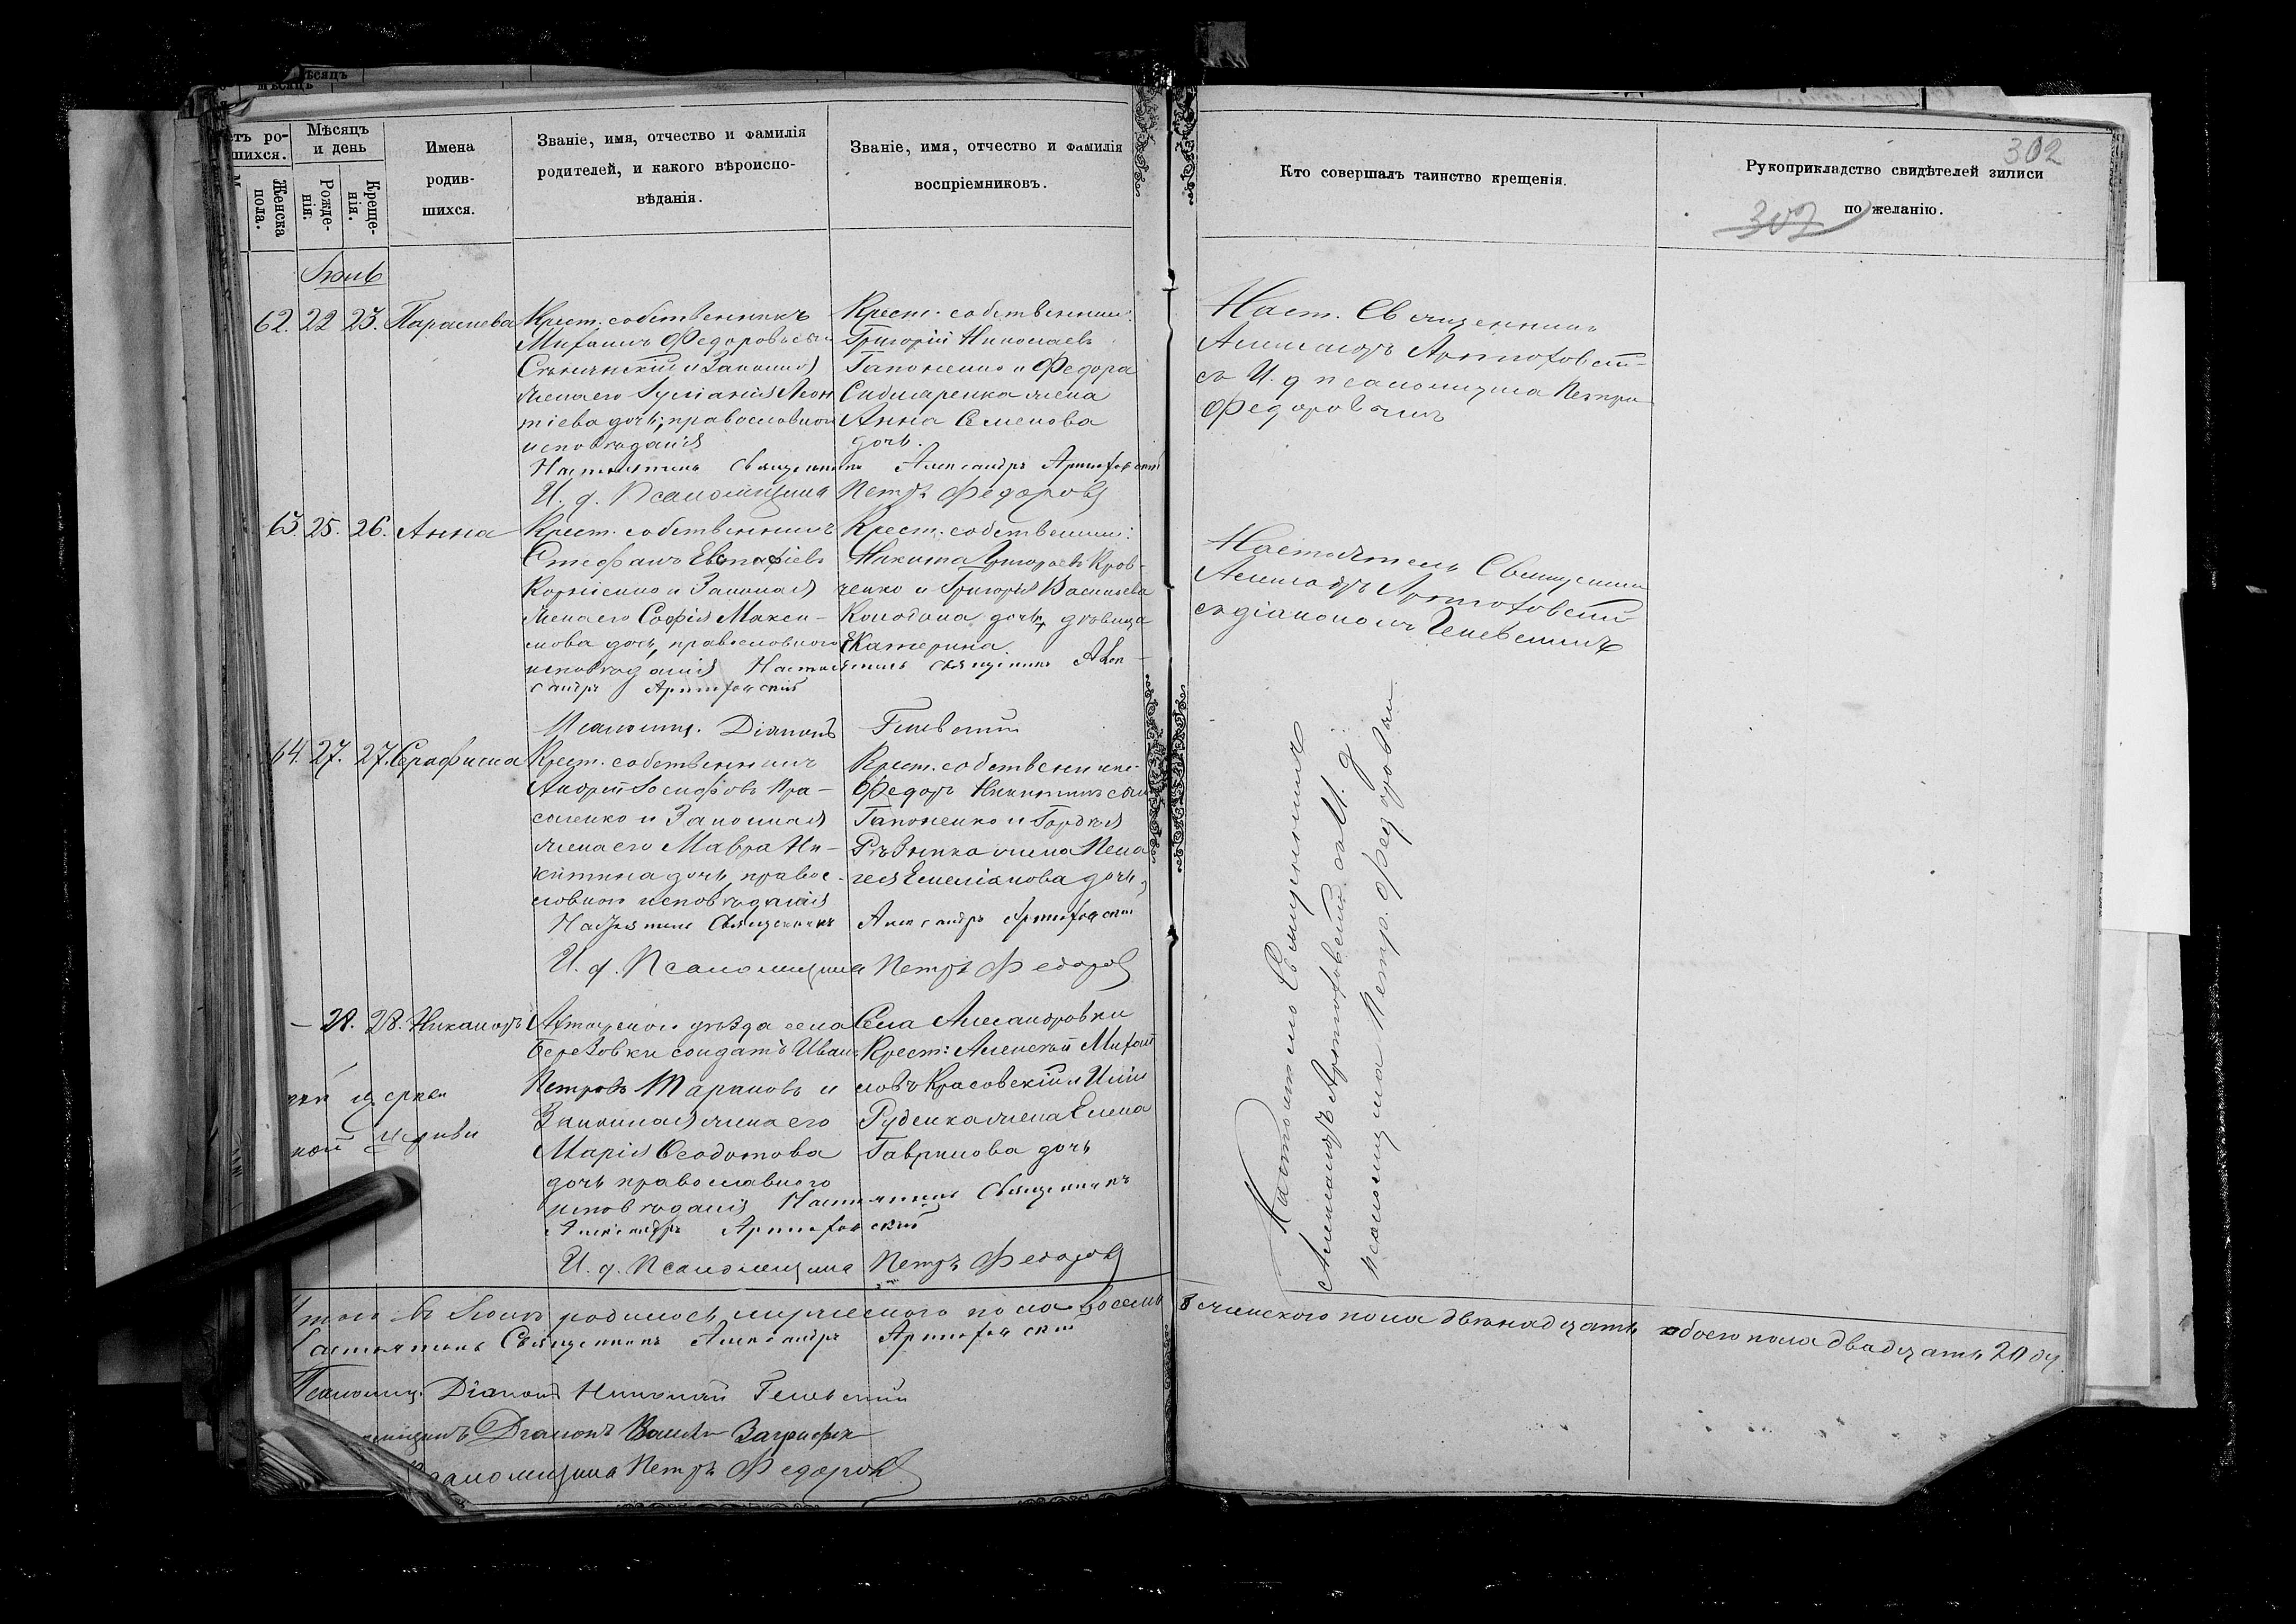 мѣсяцъ
етъ ро-
шихся.
Женска
пола.
Мѣсяцъ
и день
Рожде-
нія.
Креще-
нія.
Имена
родив-
шихся.
Званіе, имя, отчество и фамилія
родителей, и какого вѣроиспо-
вѣданія.
Званіе, имя, отчество и фамилія
воспріемниковъ.
Кто совершалъ таинство крещенія.
Рукоприкладство свидѣтелей записи
по желанію.
302
307
62. 22 23. Параскева
Крест. собственникъ
Михаилъ Федоровъ
и Законная
жена его Иуліанія Леон
тіева дочь, православнои
исповѣданія
Крест. собственник.
Григорій Николаевъ
Гапоненко и Федора
жена
Анна Семенова
дочь.
Настоятель Священникъ Александръ Артюховскій
И. д. Псаломщика Петръ Федоровъ
Наст. Священникъ
Александръ Артюховскій
съ И. д псаломщика Петро
Федоровымъ
63. 25. 26. Анна
Крест. собственникъ
Стефанъ Евстафіевъ
Корніенко и Законная
жена его Софія Макси-
мова дочь, православного
исповѣданія
Крест. собственник:
Никита Григорьевъ Крав-
ченко и Григорія Васильева
дочь, дѣвица
Екатерина.
Настоятель священникъ Алек-
сандръ Артюховскій
Псаломщ. Діаконъ Гелевскій
Настоятель Священник
Александръ Артюховскій
съ діакономъ Гелевскимъ
64. 27. 27. Серафима
Крест. собственникъ
Андрей Іосифовъ Кра-
соленко и Законная
жена его Мавра Ни-
китина дочь, правос-
ловнои исповѣданія
Крест. собственники
Федоръ Никитинъ сын
Гапоненко и Гордѣя
Рѣзника жена Пела
гея Емеліанова дочь,
Настоятель Священникъ Александръ Артюховскій
И. д. Псаломщика Петръ Федоровъ
— 28. 28. Никаноръ
Ахтирскои уѣзда села
Березовки солдатъ Иван
Петровъ Тарановъ и
Законная жена его
Марія Феодотова
дочь православного
исповѣданія
Села Александровки
Крест: Алексѣй Михай
ловъ Красовскій и
Руденка жена Елена
Гаврилова дочь
Настоятель Священникъ
Александръ Артюховскій
И. д. Псаломщика Петръ Федоровъ
церкви
церкви
Настоятель Священникъ
Александръ Артюховскій съ И. д.
псаломщика Петр. Федоровым
родилось мужеского пола восемь 8 женского пола двѣнадцать обоего пола двадцать 20 д
Настоятель Священникъ Александръ Артюховскій
Псаломщ. Діаконъ Николай Гелевскій
Діаконъ
Псаломщика Петръ Федоровъ